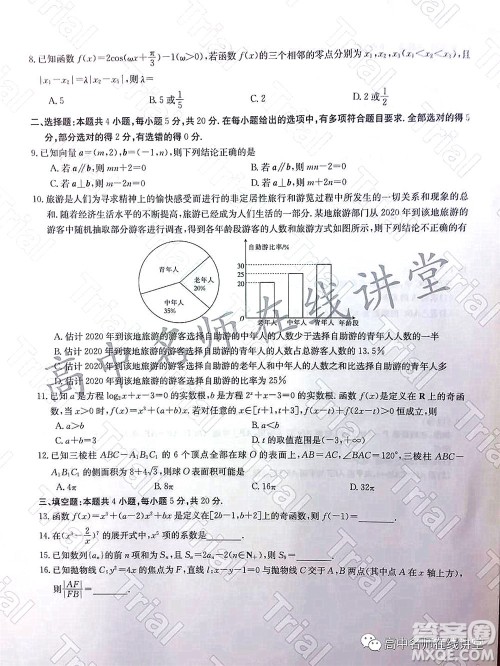 8. 已知函数 f(x)=2cos(ωx+π/3)-1(ω>0),若函数 f(x)的三个相邻的零点分别为 x₁,x₂,x₃(x₁<x₂<x₃),且
|x₁-x₂|=λ|x₂-x₃|,则 λ=
A. 5 B. 5 或 1/5 C. 2 D. 2 或 1/2
二、选择题:本题共 4 小题,每小题 5 分,共 20 分. 在每小题给出的选项中,有多项符合题目要求. 全部选对的得 5
分,部分选对的得 2 分,有选错的得 0 分.
9. 已知向量 a=(m,2),b=(-1,n),则下列结论正确的是
A. 若 a∥b,则 mn+2=0 B. 若 a∥b,则 mn-2=0
C. 若 a⊥b,则 m-2n=0 D. 若 a⊥b,则 m+2n=0
10. 旅游是人们为寻求精神上的愉快感受而进行的非定居性旅行和游览过程中所发生的一切关系和现象的总
和. 随着经济生活水平的不断提高,旅游已经成为人们生活的一部分. 某地旅游部门从 2020 年到该地旅游的
游客中随机抽取部分游客进行调查,得到各年龄段游客的人数和旅游方式如图所示,则下列结论不正确的有
青年人
老年人
20%
中年人
35%
自助游比率/%
30
25
20
老年人 中年人 青年人 年龄段
A. 估计 2020 年到该地旅游的游客选择自助游的中年人的人数少于选择自助游的青年人人数的一半
B. 估计 2020 年到该地旅游的游客选择自助游的青年人的人数占总游客人数的 13.5%
C. 估计 2020 年到该地旅游的游客选择自助游的老年人和中年人的人数之和比选择自助游的青年人多
D. 估计 2020 年到该地旅游的游客选择自助游的比率为 25%
11. 已知 a 是方程 log₂x+x-3=0 的实数根,b 是方程 2ˣ+x-3=0 的实数根. 函数 f(x)是定义在 R 上的奇函
数,当 x>0 时,f(x)=x²+(a+b)x. 若对任意的 x∈[t+1,t+3],f(x-t)+f(2x-t)>0 恒成立,则
A. a>b B. a<b
C. a+b=3 D. t 的取值范围是(-3,+∞)
12. 已知三棱柱 ABC-A₁B₁C₁ 的 6 个顶点全部在球 O 的表面上,AB=AC,∠BAC=120°,三棱柱 ABC-
A₁B₁C₁ 的侧面积为 8+4√3,则球 O 表面积可能是
A. 4π B. 8π C. 16π D. 32π
三、填空题:本题共 4 小题,每小题 5 分,共 20 分.
13. 函数 f(x)=x³+(a-2)x²+bx 是定义在[2b-1,b+2]上的奇函数,则 f(-1)=
14. 在(x³-2/x)⁷ 的展开式中,x⁵ 项的系数是
15. 已知数列{aₙ}的前 n 项和为 Sₙ,且 Sₙ=2aₙ-2(n∈N₊),则 S₉=
16. 已知抛物线 C:y²=4x 的焦点为 F,直线 l:x-y-1=0 与抛物线 C 交于 A,B 两点(其中点 A 在 x 轴上方),
则|AF|/|FB|=
高中名师在线讲堂
Trial
高中名师在线讲堂
答案圈
MXQE.COM